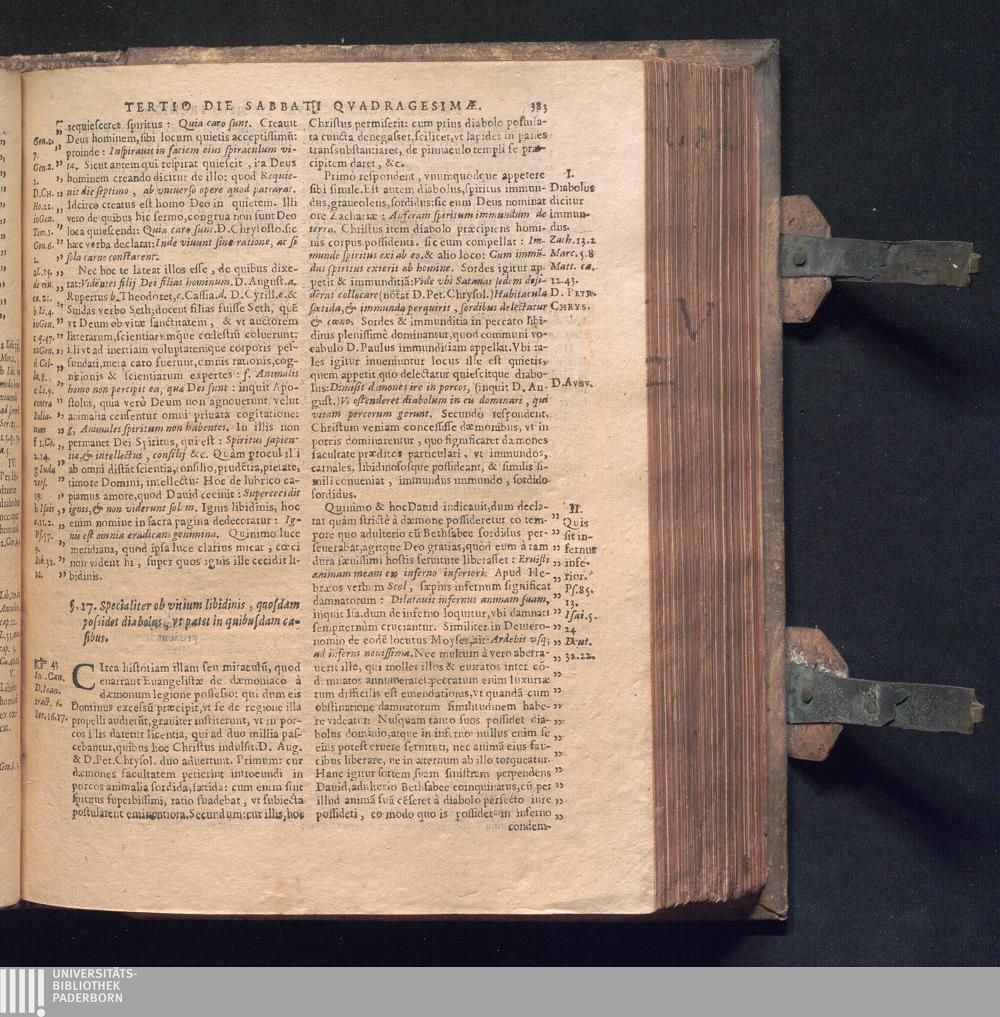 TERTIO DIE SABBATI QVADRAGESIMÆ. 383
requiesceret spiritus: Quia caro sunt. Creauit
Deus hominem, sibi locum quietis acceptissimũ:
proinde: Inspirauit in faciem eius spiraculum vi-
tæ. Sicut autem qui respirat quiescit, ita Deus
hominem creando dicitur de illo; quod Requie-
uit die septimo, ab vniuerso opere quod patrarat.
Idcirco creatus est homo Deo in quietem. Illi
vero de quibus hic sermo, congrua non sunt Deo
loca quiescendi: Quia caro sunt. D. Chrysosto. sic
hæc verba declarat: Inde viuunt sine ratione, ac si
sola carne constarent.
Nec hoc te lateat illos esse, de quibus dixe-
rat: Videntes filij Dei filias hominum. D. August. a.
Rupertus b, Theodoret, c. Cassia. d. D. Cyrill. e. &
Suidas verbo Seth; docent filias fuisse Seth, quẽ
vt Deum ob vitæ sanctitatem, & vt auctorem
litterarum, scientiarumque cœlestiũ coluerunt:
illi vt ad inertiam voluptatemque corporis pes-
sundati, mera caro fuerunt, omnis rationis, cog-
nitionis & scientiarum expertes: f. Animalis
homo non percipit ea, quæ Dei sunt: inquit Apo-
stolus, quia verò Deum non agnouerunt velut
animalia censentur omni priuata cogitatione:
g, Animales spiritum non habentes. In illis non
permanet Dei Spiritus, qui est: Spiritus sapien-
tiæ, & intellectus, consilij &c. Quàm procul illi
ab omni distãt scientia, consilio, prudẽtia, pietate,
timore Domini, intellectu: Hoc de lubrico ca-
piamus amore, quod Dauid cecinit: Supercecidit
ignis, & non viderunt solem. Ignis libidinis, hoc
enim nomine in sacra pagina dedecoratur: Ig-
nis est omnia eradicans genimina. Quinimo luce
meridiana, quod ipsa luce clarius micat, cœci
non vident hi, super quos ignis ille cecidit li-
bidinis.
§. 17. Specialiter ob vitium libidinis, quosdam
possidet diabolus, vt patet in quibusdam ca-
sibus.
CIrca historiam illam seu miraculũ, quod
enarraut Euangelistæ de dæmoniaco à
dæmonum legione possesso: qui dum eis
Dominus excessũ præcipit, vt se de regione illa
propelli audierũt, grauiter institerunt, vt in por-
cos illis daretur licentia, qui ad duo millia pas-
cebantur, quibus hoc Christus indulsit. D. Aug.
& D. Pet. Chrysol. duo aduertunt. Primum: cur
dæmones facultatem petierint introeundi in
porcos animalia sordida, fætida: cum enim sint
spiritus superbissimi, ratio suadebat, vt subiecta
postularent eminentiora. Secundum: cur illis, hoc
Gen. 2.
7.
Gen. 2.
2.
D. CH.
Ho. 22.
in Gen.
Tom. 1.
Gen. 6.
2.
a L. 15.
de ciu.
ca. 21.
b Li. 4.
in Gen.
c q. 47.
in Gen.
d Col-
la. 8.
e Li. 9.
contra
Iulia-
num
f 1. Co.
2. 14.
g Iudæ
vers.
19.
h Isaiæ
c. 11. 2.
Ps. 57.
9.
Iob. 31.
12.
43
In. Can.
D. Ioan.
tract. 6.
Ier. 16. 17.
Christus permiserit: cum prius diabolo postula-
ta cuncta denegasset. scilicet, vt lapides in panes
transsubstantiaret, de pinnaculo templi se præ-
cipitem daret, &c.
Primò respondent, vnumquodque appetere
sibi simile. Est autem diabolus, spiritus immun-
dus, graueolens, sordidus: sic eum Deus nominat
ore Zachariæ: Auferam spiritum immundum de
terra. Christus item diabolo præcipiens homi-
nis corpus possidenti, sic eum compellat: Im-
munde spiritus exi ab eo. & alio loco: Cum immũ-
dus spiritus exierit ab homine. Sordes igitur ap-
petit & immunditiã: Vide vbi Satanas sedem desi-
derat collocare (notat D. Pet. Chrysol.) Habitacula
fœtida, & immunda perquirit, sordibus delectatur
& cœno. Sordes & immunditia in peccato libi-
dinis plenissimè dominantur, quod communi vo-
cabulo D. Paulus immunditiam appellat. Vbi ta-
les igitur inueniuntur locus ille est quietis,
quem appetit quo delectatur quiescitque diabo-
lus: Dimisit dæmones ire in porcos, (inquit D. Au-
gust.) Vt ostenderet diabolum in eis dominari, qui
vitam porcorum gerunt. Secundo respondent,
Christum veniam concessisse dæmonibus, vt in
porcis dominarentur, quo significaret dæmones
facultate præditos particulari, vt immundos,
carnales, libidinososque possideant, & similis si-
mili conueniat, immundus immundo, sordido
sordidus.
Quinimo & hoc Dauid indicauit, dum decla-
rat quàm strictè à dæmone possideretur eo tem-
pore quo adulterio cũ Bethsabee sordidus per-
seuerabat, agitque Deo gratias, quòd eum à tam
dura sæuissimi hostis seruitute liberasset: Eruisti
animam meam ex inferno inferiori. Apud He-
bræos verbum Seol, sæpius infernum significat
damnatorum: Dilatauit infernus animam suam,
inquit Isaias, dum de inferno loquitur, vbi damnati
sempiternùm cruciantur. Similiter in Deutero-
nomio de eodẽ locutus Moyses, ait: Ardebit vsq;
ad inferni nouissima. Nec multùm à vero aberra-
uerit ille, qui molles illos & euiratos inter cõ-
demnatos annumeraret: peccatum enim luxuriæ
tum difficilis est emendationis, vt quandã cum
obstinatione damnatorum similitudinem habe-
re videatur. Nusquam tanto suos possidet dia-
bolus dominio, atque in inferno: nullus enim se
eius potest eruere seruituti, nec animã eius fau-
cibus liberare, ne in æternum ab illo torqueatur.
Hanc igitur sortem suam sinistram perpendens
Dauid, adulterio Bethsabee coinquinatus, cũ per
illud animã suã cẽseret à diabolo perfecto iure
possideri, eo modo quo is possidet in inferno
condem-
I.
Diabolus
dicitur
immun-
dus.
Zach. 13. 2
Marc. 5. 8
Matt. ca.
12. 43.
D. PETR.
CHRYS.
D. AVGV.
II.
Quis
sit in-
fernus
infe-
rior.
Ps. 85.
13.
Isai. 5.
24
Deut.
32. 22.
UNIVERSITÄTS-
BIBLIOTHEK
PADERBORN